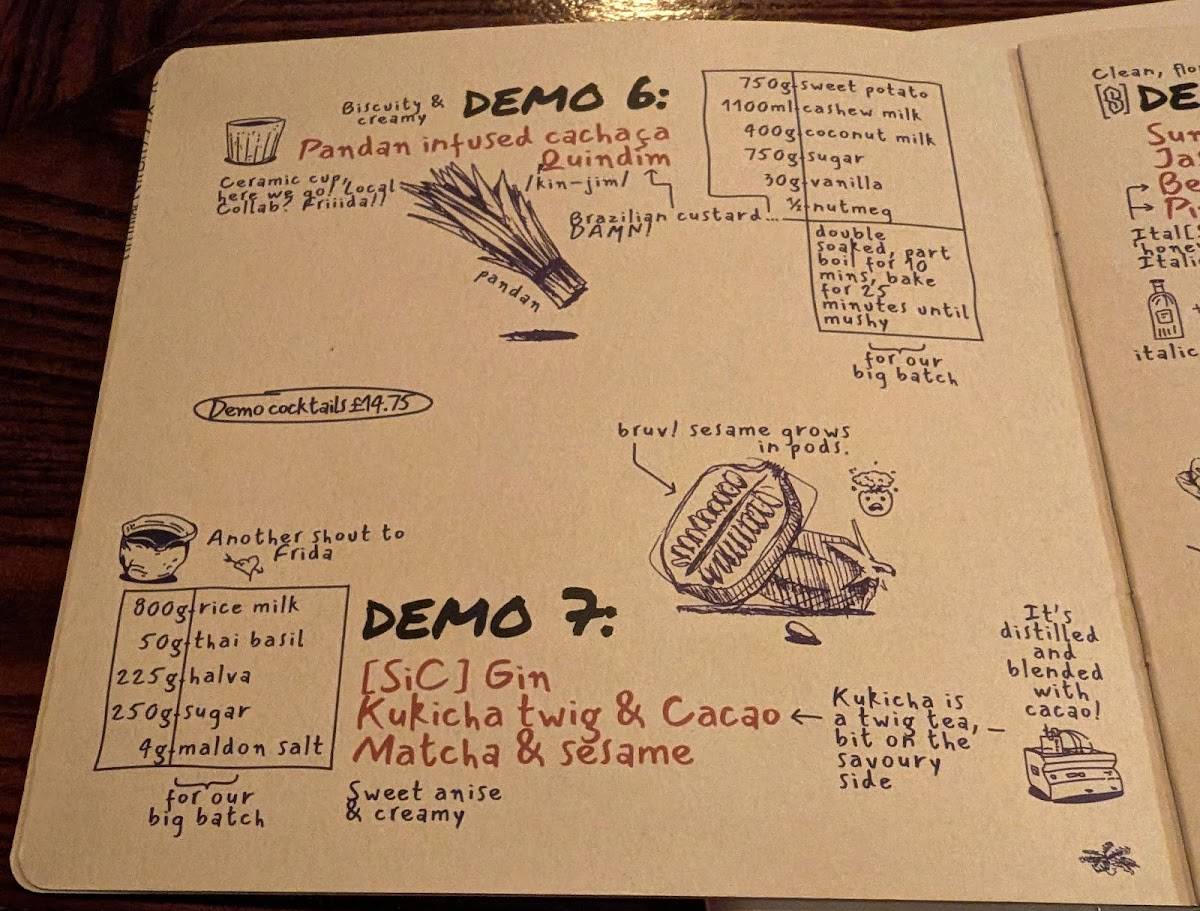 Biscuity &
creamy
DEMO 6:
Pandan infused cachaça
Quindim
/kin-jim/
Ceramic cup,
here we go! Local
Collab? Friiida!!
pandan
Brazilian custard...
DAMN!
750g sweet potato
1100ml cashew milk
400g coconut milk
750g sugar
30g vanilla
½ nutmeg
double
soaked, part
boil for 10
mins, bake
for 25
minutes until
mushy
for our
big batch
Demo cocktails £14.75
bruv! sesame grows
in pods.
Another shout to
Frida
800g rice milk
50g thai basil
225g halva
250g sugar
4g maldon salt
for our
big batch
DEMO 7:
[SiC] Gin
Kukicha twig & Cacao
Matcha & sesame
Sweet anise
& creamy
Kukicha is
a twig tea,
bit on the
savoury
side
It's
distilled
and
blended
with
cacao!
Clean, flo
[S] DE